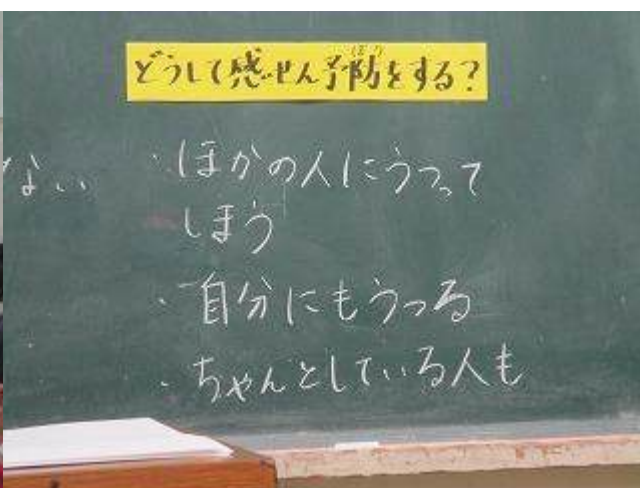 どうして感せん予防をする?
ぼう
ない
・ほかの人にうつって
しまう
・自分にもうつる
・ちゃんとしている人も